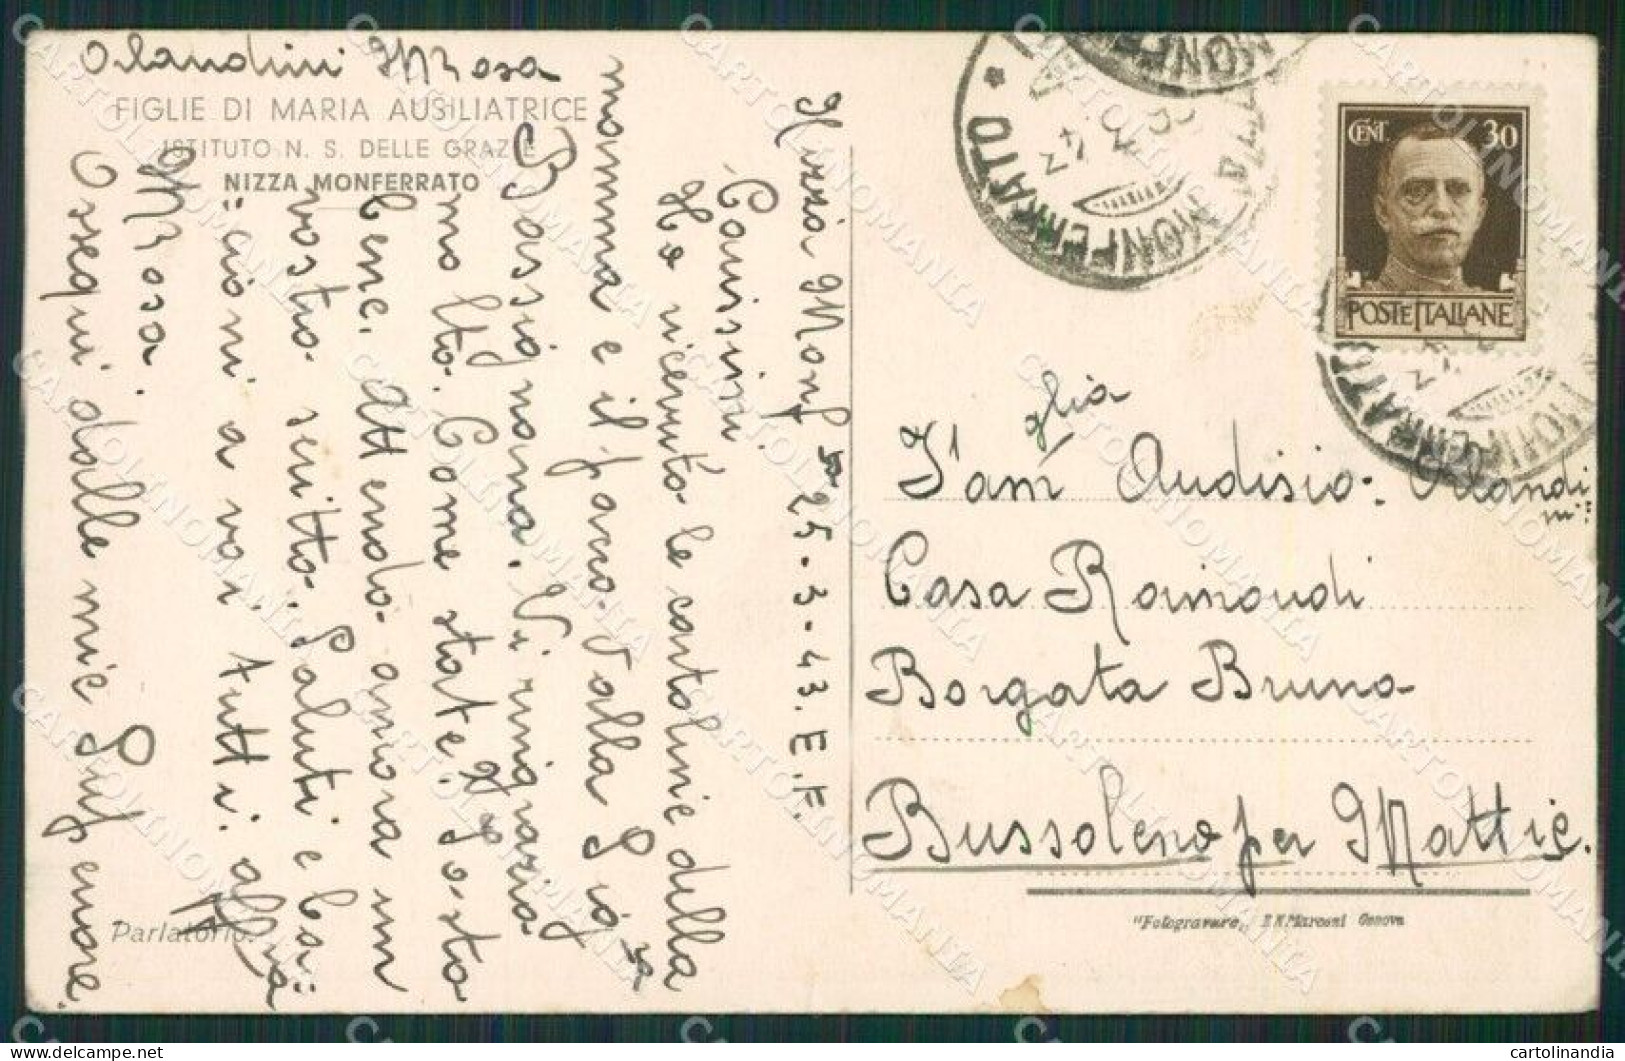 Orlandini M Rosa
FIGLIE DI MARIA AUSILIATRICE
ISTITUTO N. S. DELLE GRAZIE
NIZZA MONFERRATO
Nizza Monf to 25-3-43. E.F.
Carissimi
Ho ricevuto le cartoline della
mamma e il pacco. Dalla Sig ra
Bassignana. Vi ringrazio
molto. Come state? Io sto
bene. Attendo ancora un
vostro scritto. Saluti e ba=
=cioni a voi tutti. aff ma
M Rosa.
Ossequi dalle mie Superiore
Parlatorio.
CENT. 30
POSTE ITALIANE
NIZZA MONFERRATO
MONFERRATO
glia
Fam Audisio = Orlandi
ni =
Casa Raimondi
Borgata Bruno
Bussoleno per Mattie.
"Fotogravure" E. N. Marconi Genova
CARTOLINOMANIA
cartolinandia